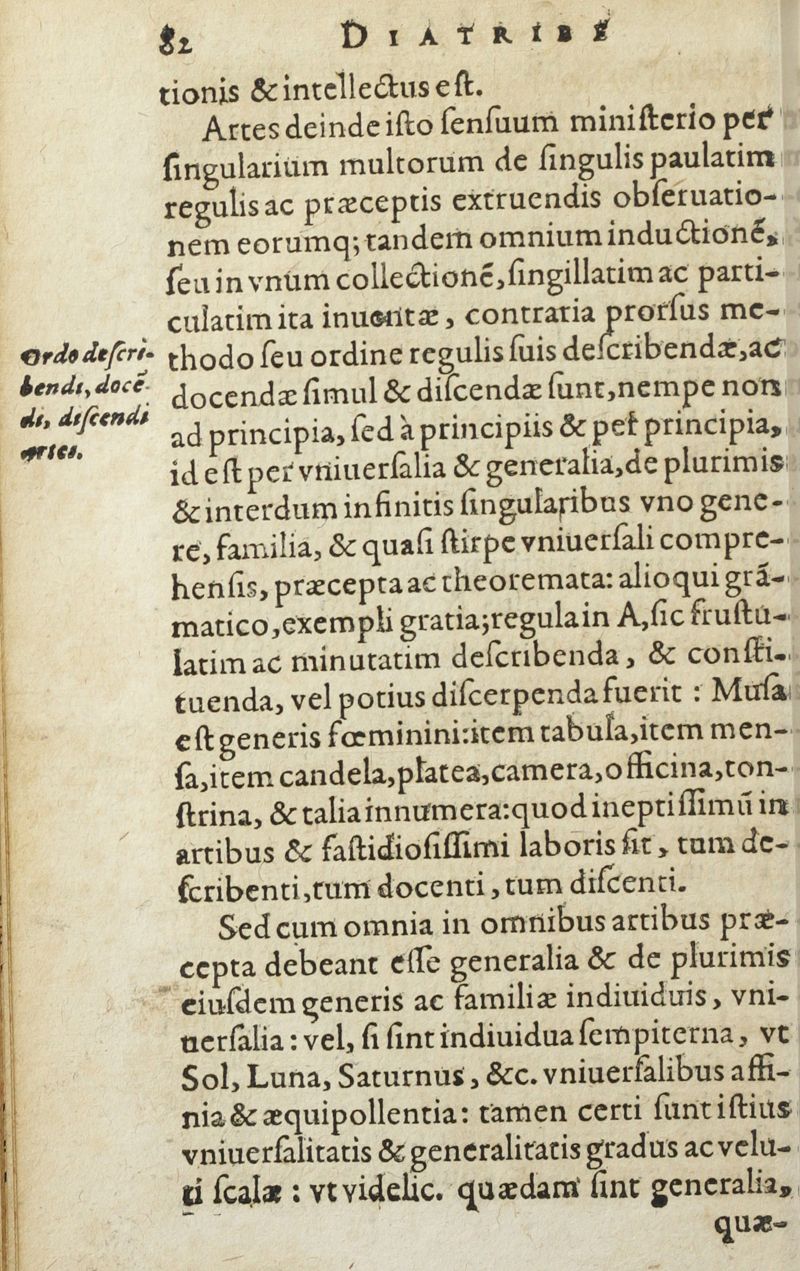 82 DIATRIBÆ
tionis & intellectus est.
Artes deinde isto sensuum ministerio per
singularium multorum de singulis paulatim
regulis ac præceptis extruendis obseruatio-
nem eorumq; tandem omnium inductionẽ,
seu in vnum collectionẽ, singillatim ac parti-
culatim ita inuentæ, contraria prorsus me-
thodo seu ordine regulis suis describendæ, ac
docendæ simul & discendæ sunt, nempe non
ad principia, sed à principiis & per principia,
id est per vniuersalia & generalia, de plurimis
& interdum infinitis singularibus vno gene-
re, familia, & quasi stirpe vniuersali compre-
hensis, præcepta ac theoremata: alioqui grã-
matico, exempli gratia; regula in A, sic frustu-
latim ac minutatim describenda, & consti-
tuenda, vel potius discerpenda fuerit: Musa
est generis fœminini: item tabula, item men-
sa, item candela, platea, camera, officina, ton-
strina, & talia innumera: quod ineptissimũ in
artibus & fastidiosissimi laboris sit, tum de-
scribenti, tum docenti, tum discenti.
Sed cum omnia in omnibus artibus præ-
cepta debeant esse generalia & de plurimis
eiusdem generis ac familiæ indiuiduis, vni-
uersalia: vel, si sint indiuidua sempiterna, vt
Sol, Luna, Saturnus, &c. vniuersalibus affi-
nia & æquipollentia: tamen certi sunt istius
vniuersalitatis & generalitatis gradus ac velu-
ti scalæ: vt videlic. quædam sint generalia,
quæ-
Ordo descri-
bendi, docẽ-
di, discendi
artes.